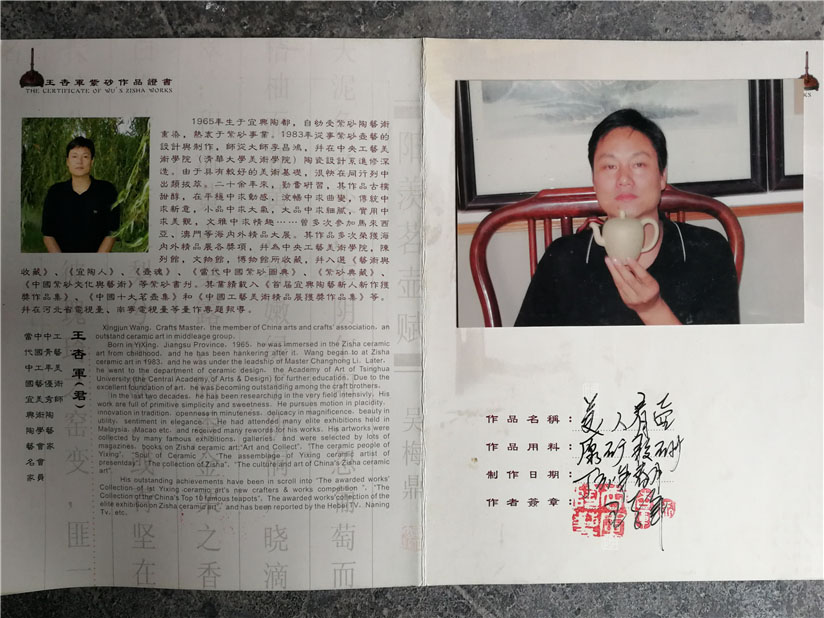 王杏軍紫砂作品證書
THE CERTIFICATE OF WU'S ZISHA WORKS
1965年生于宜興陶都，自幼受紫砂陶藝術
熏染，熱衷于紫砂事業。1983年從事紫砂壺藝的
設計與制作，師從大師李昌鴻，并在中央工藝美
術學院（清華大學美術學院）陶瓷設計系進修深
造。由于具有較好的美術基礎，很快在同行列中
出類拔萃。二十余年來，勤奮研習，其作品古樸
甜醇，在平穩中求動感，流暢中求曲變，傳統中
求新意，小品中求大氣，大品中求細膩，實用中
求美觀，文雅中求精趣……曾多次參加馬來西
亞、澳門等海内外精品大展。其作品多次榮獲海
内外精品展各獎項，并為中央工藝美術學院，陳
列館，文物館，博物館所收藏，并入選《藝術與
收藏》、《宜陶人》、《壺魂》、《當代中國紫砂圖典》、《紫砂典藏》、
《中國紫砂文化與藝術》等紫砂書刊。其業績載入《首届宜興陶藝新人新作獲
獎作品集》、《中國十大茗壺集》和《中國工藝美術精品展獲獎作品集》等。
并在河北省電視臺、南寧電視臺等臺作專題報導。
王杏軍（君）
工藝美術師
中國工藝美術學會會員
Xingjun Wang. Crafts Master. the member of China arts and crafts' association. an
outstand ceramic art in middleage group.
Born in YiXing. Jiangsu Province. 1965. he was immersed in the Zisha ceramic
art from childhood. and he has been hankering after it. Wang began to at Zisha
ceramic art in 1983. and he was under the leadship of Master Changhong Li. Later.
he went to the department of ceramic design. the Academy of Art of Tsinghua
University (the Central Academy of Arts & Design) for further education. Due to the
excellent foundation of art. he was becoming outstanding among the craft brothers.
In the last two decades. he has been researching in the very field intensivly. His
works are full of primitive simplicity and sweetness. He pursues motion in placidity.
innovation in tradition. openness in minuteness. delicacy in magnificence. beauty in
utility. sentiment in elegance. He had attended many elite exhibitions held in
Malaysia. Macao etc. and received many rewords for his works. His artworks were
collected by many famous exhibitions. galleries. and were selected by lots of
magazines. books on Zisha ceramic art:"Art and Collect". "The ceramic people of
Yixing". "Soul of Ceramic". "The assemblage of Yixing ceramic artist of
presentday". "The collection of Zisha". "The culture and art of China's Zisha ceramic
art".
His outstanding achievements have been in scroll into "The awarded works'
Collection of ist Yixing ceramic art's new crafters & works competition". "The
Collection of the China's Top 10 famous teapots". The awarded works'collection of the
elite exhibition on Zisha ceramic art". and has been reported by the Hebei TV. Naning
Tv. etc.
陽羨茗壺賦
吳梅鼎
作品名稱：美人肩壺
作品用料：
制作日期：
作者簽章：